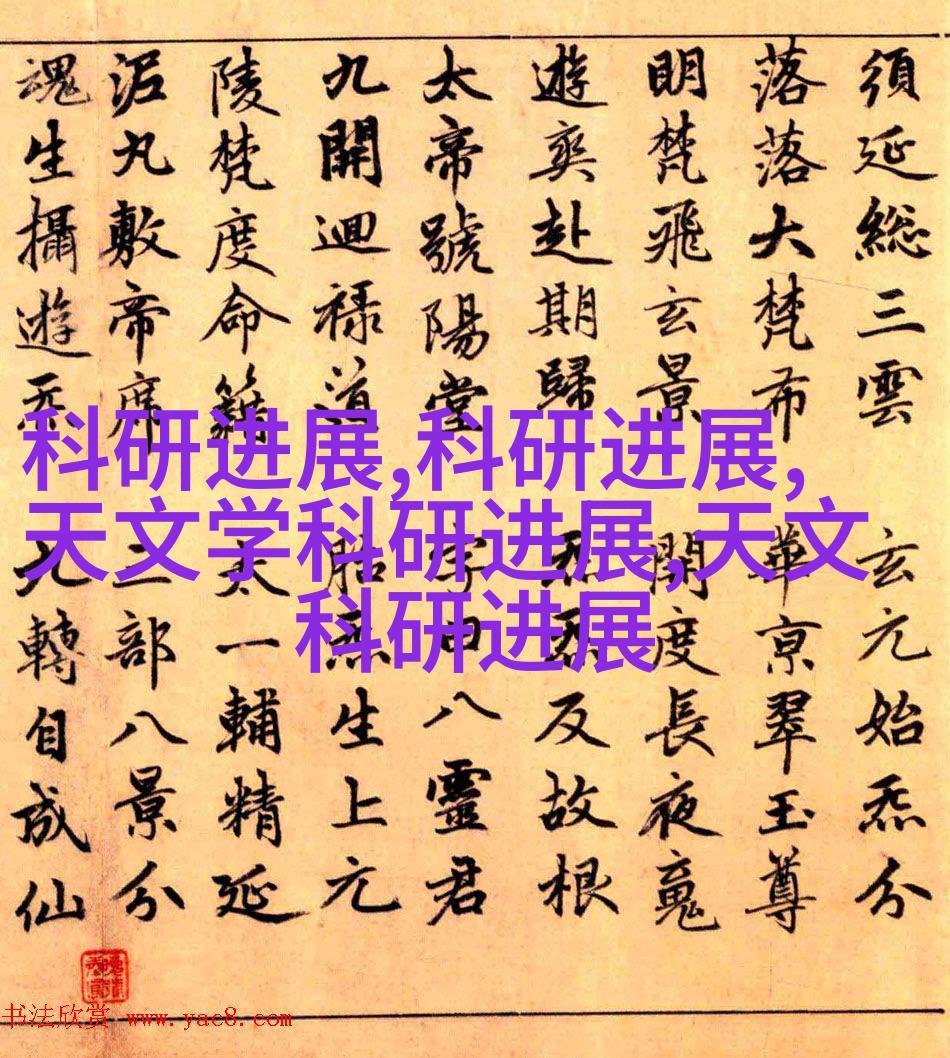 須延総三雲 玄元始炁分
落落大梵布 華京翠玉尊
明梵飛玄景 開度長夜魂
遊爽赴期歸 炁炁反故根
太帝號陽堂 字曰八靈君
九開迴祿道 胎炁生上元
陵梵度命籍 太一輔精延
泥丸敷帝席 二部八景分
魂生攝遊炁 九轉自成仙
科研进展,科研进展,
天文学科研进展,天文
科研进展
书法欣赏 www.yac8.com